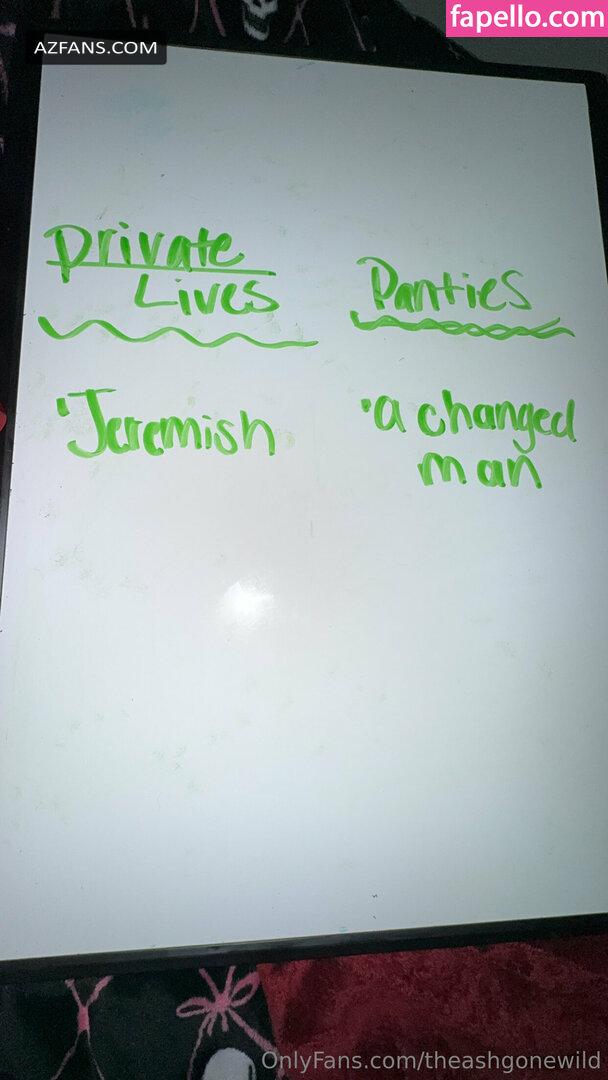 fapello.com
AZFANS.COM
private
Lives
Panties
'Jeremish
'a changed
man
OnlyFans.com/theashgonewild